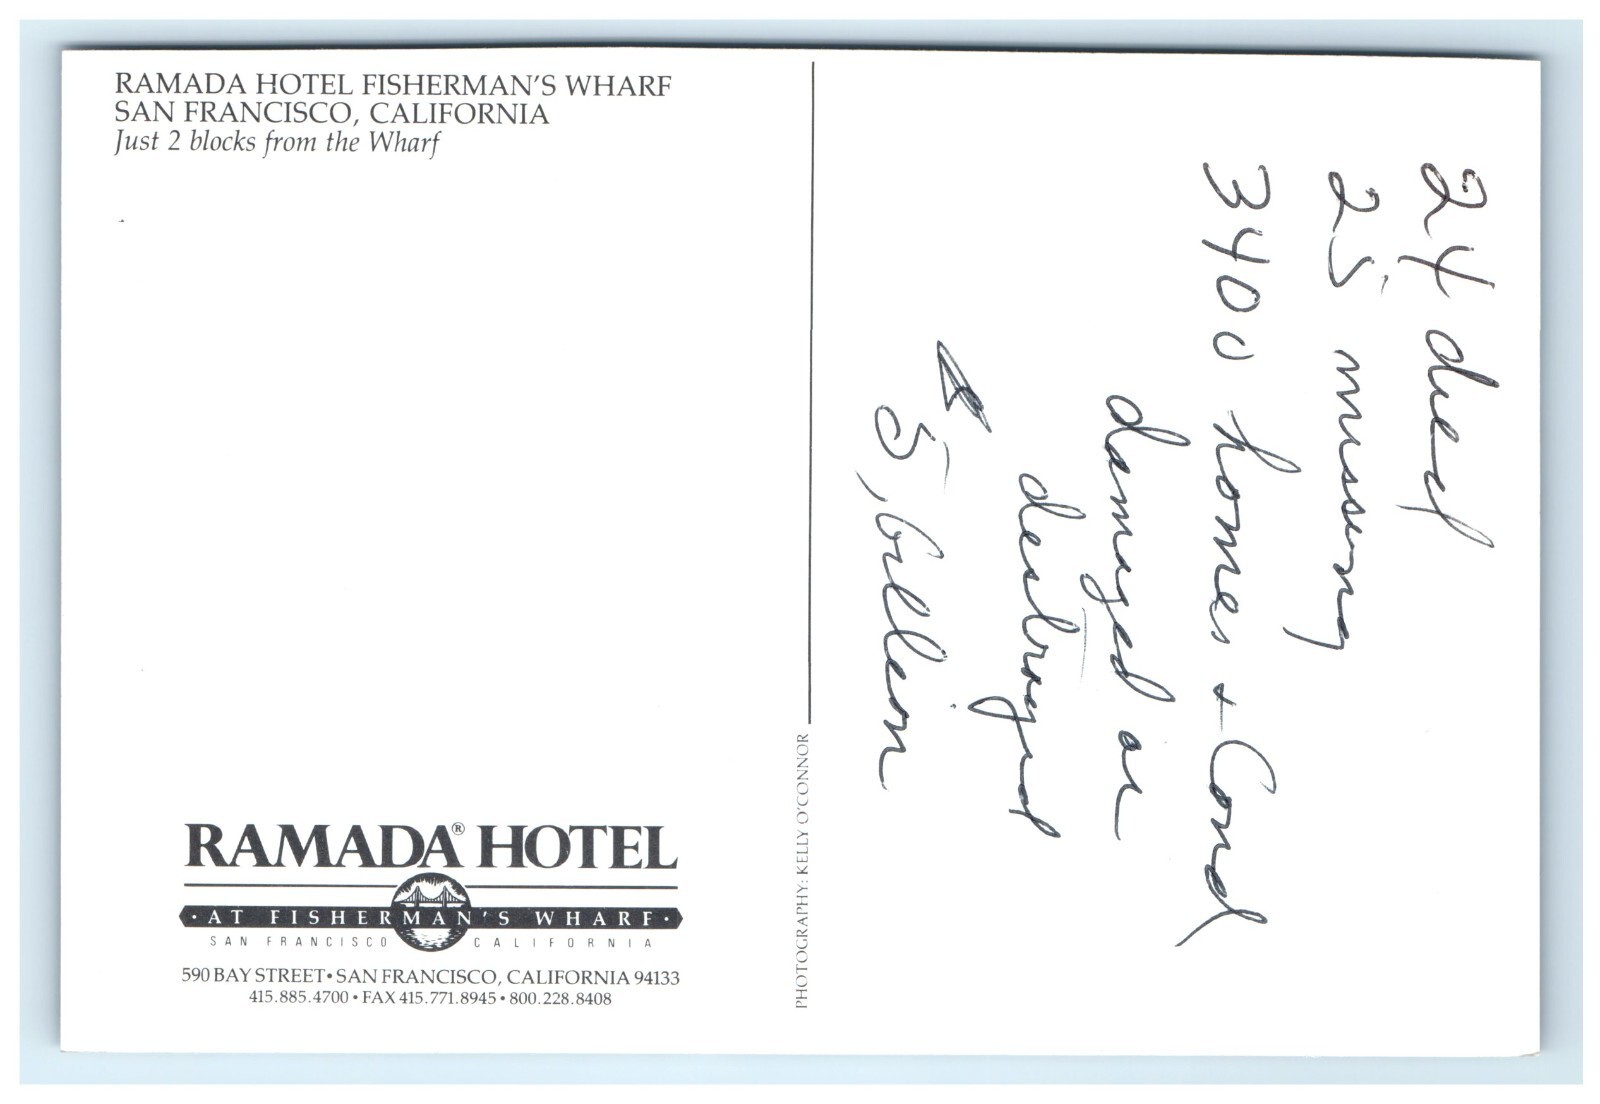 RAMADA HOTEL FISHERMAN'S WHARF
SAN FRANCISCO, CALIFORNIA
Just 2 blocks from the Wharf
RAMADA® HOTEL
· AT FISHERMAN'S WHARF ·
SAN FRANCISCO CALIFORNIA
590 BAY STREET • SAN FRANCISCO, CALIFORNIA 94133
415.885.4700 • FAX 415.771.8945 • 800.228.8408
PHOTOGRAPHY: KELLY O'CONNOR
24 died
25 missing
3400 homes + Cond
damaged or
destroyed
5, billion